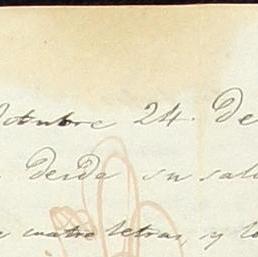 Octubre 24. De
desde su sal
e cuatro letras, y l